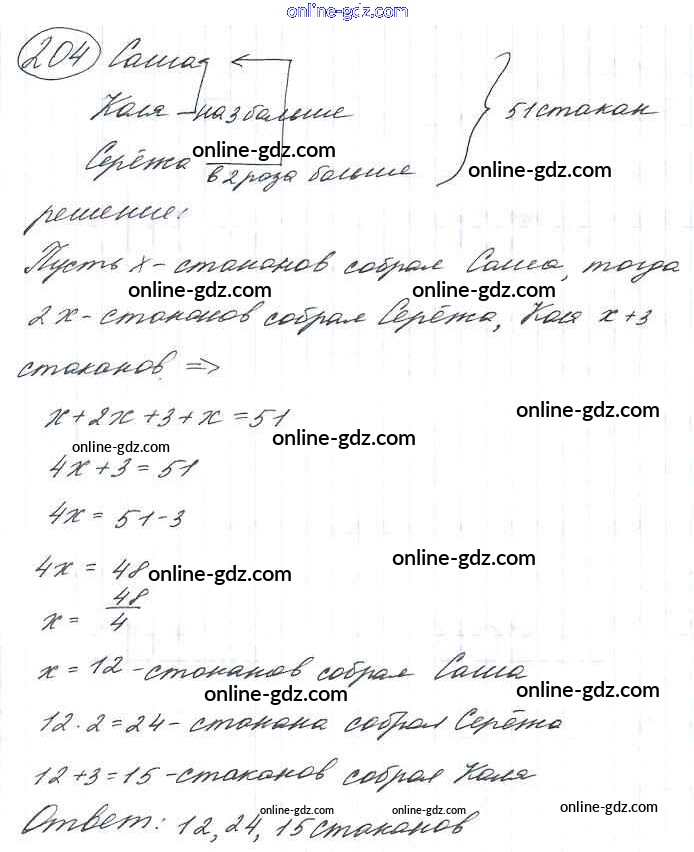 online-gdz.com
204 Саша
Коля - на 3 больше
51 стакан
Серёжа в 2 раза больше
online-gdz.com
online-gdz.com
решение:
Пусть x - стаканов собрал Саша, тогда
online-gdz.com
online-gdz.com
2x - стаканов собрал Серёжа, Коля x+3
стаканов. =>
x+2x+3+x=51
online-gdz.com
online-gdz.com
online-gdz.com
4x+3=51
4x=51-3
online-gdz.com
4x = 48
online-gdz.com
x = 48/4
x=12 - стаканов собрал Саша
online-gdz.com
online-gdz.com
12·2=24 - стакана собрал Серёжа
12+3=15 - стаканов собрал Коля
online-gdz.com
online-gdz.com
online-gdz.com
Ответ: 12, 24, 15 стаканов